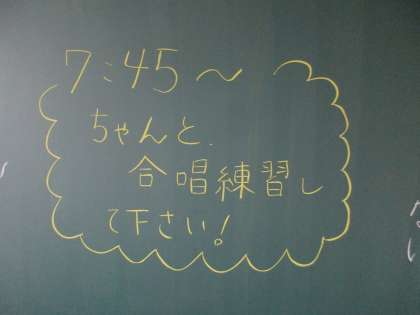 7:45〜
ちゃんと.
合唱練習し
て下さい!